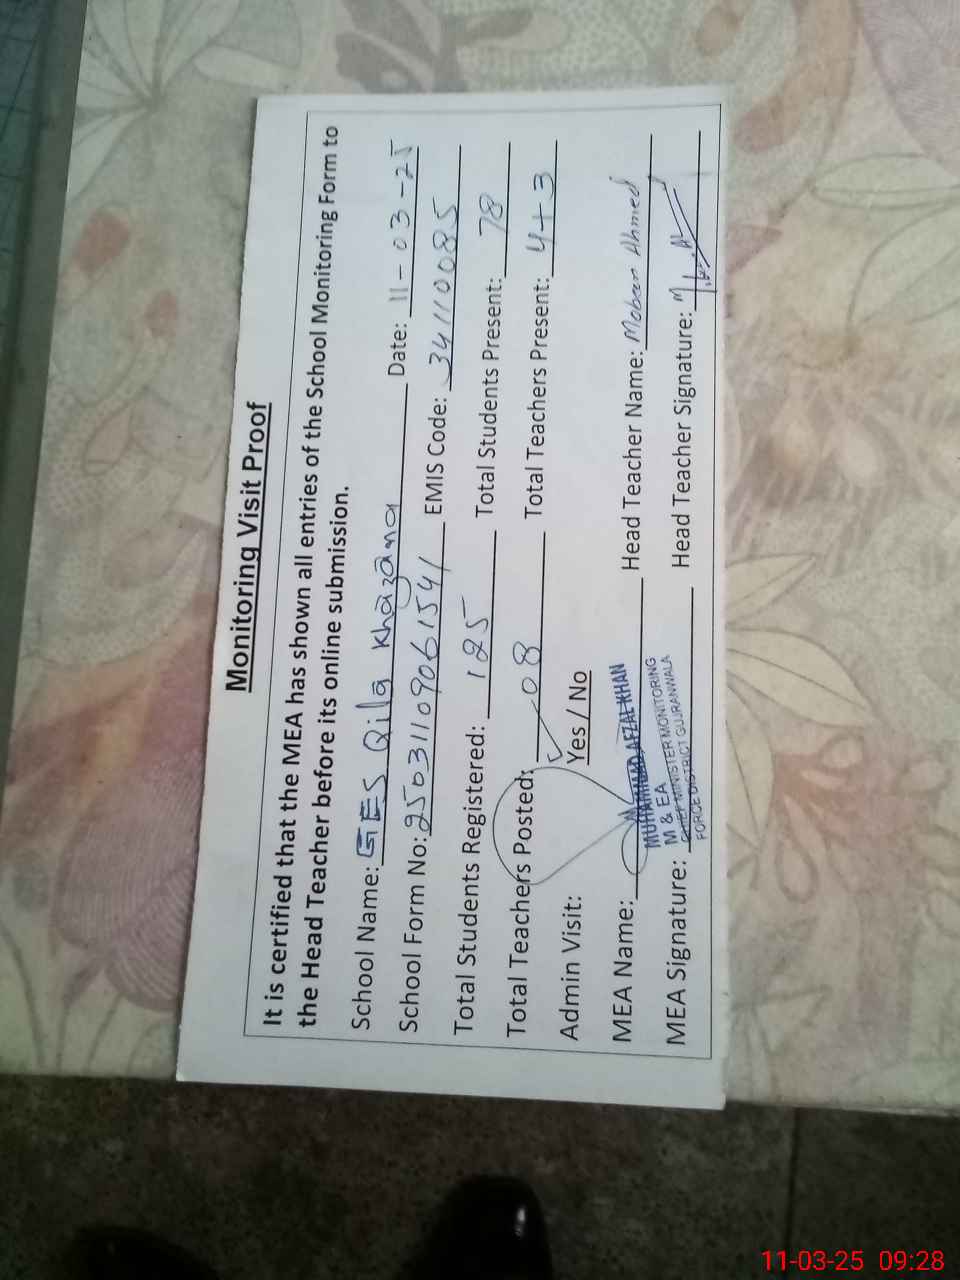 Monitoring Visit Proof
It is certified that the MEA has shown all entries of the School Monitoring Form to
the Head Teacher before its online submission.
School Name: GES Qila Khazana Date: 11-03-25
School Form No: 25031109061541 EMIS Code: 34110085
Total Students Registered: 125 Total Students Present: 78
Total Teachers Posted: 08 Total Teachers Present: 4+3
Admin Visit: Yes / No
MEA Name: Head Teacher Name: Moban Ahmed
MUHAMMAD AFZAL KHAN
M & EA
CHIEF MINISTER MONITORING
FORCE DISTRICT GUJRANWALA
MEA Signature: Head Teacher Signature:
11-03-25 09:28